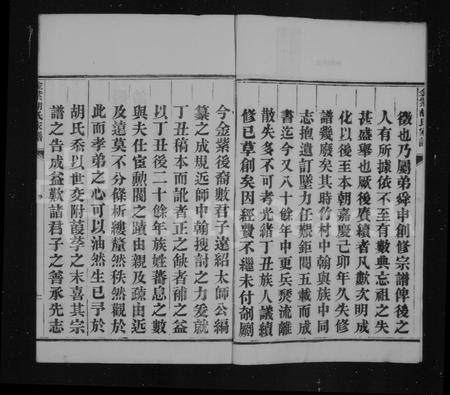 徵也乃屬弟舜申創修宗譜俾後之
人有所據依不至有數典忘祖之失
甚盛舉也厥後賡續者凡數次明成
化以後至本朝嘉慶己卯年久失修
譜幾廢矣其時竹村中翰與族中同
志抱遺訂墜力任艱鉅閱五載而成
書迄今又八十餘年中更兵燹流離
散失多不可考光緒丁丑族人議續
修已草創矣因經費不繼未付剞劂
今金紫後裔數君子遠紹太師公編
纂之成規近師中翰搜討之力爰就
丁丑稿本而訛者正之缺者補之益
以丁丑後二十餘年族姓蕃息之數
與夫仕宦勲閥之蹟由親及疏由近
及遠莫不分條析縷釐然秩然觀於
此而孝弟之心可以油然生已予於
胡氏忝以世交附葭莩之末喜其宗
譜之告成益歎諸君子之善承先志
金紫胡氏家譜